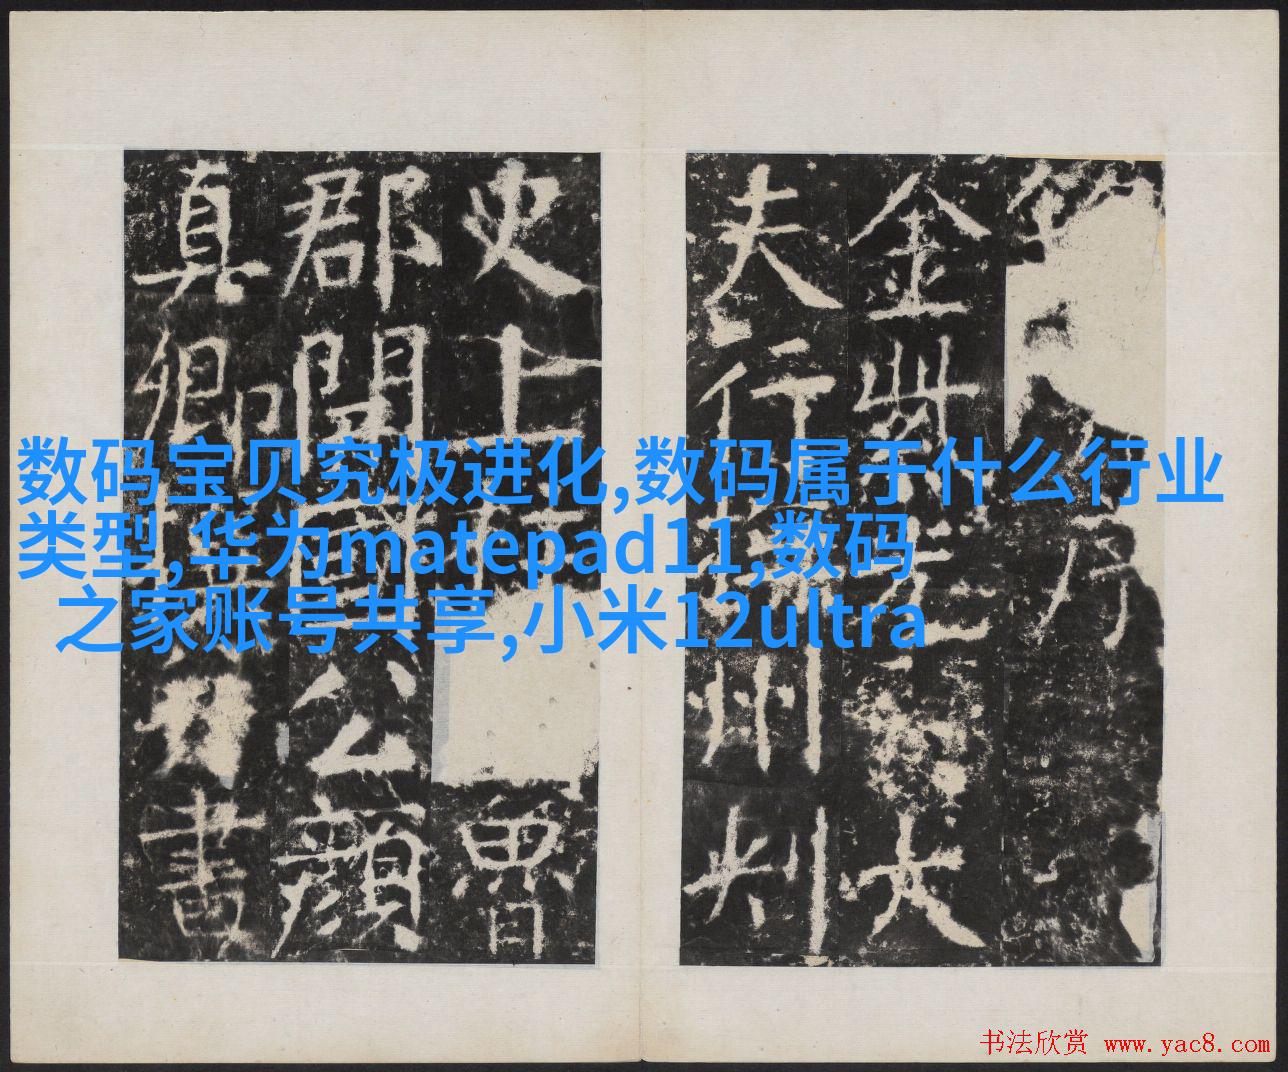 金紫光大
夫行撫州刺
史上柱魯
郡開國公顏
真卿書
数码宝贝究极进化,数码属于什么行业
类型,华为matepad11,数码
之家账号共享,小米12ultra
书法欣赏 www.yac8.com